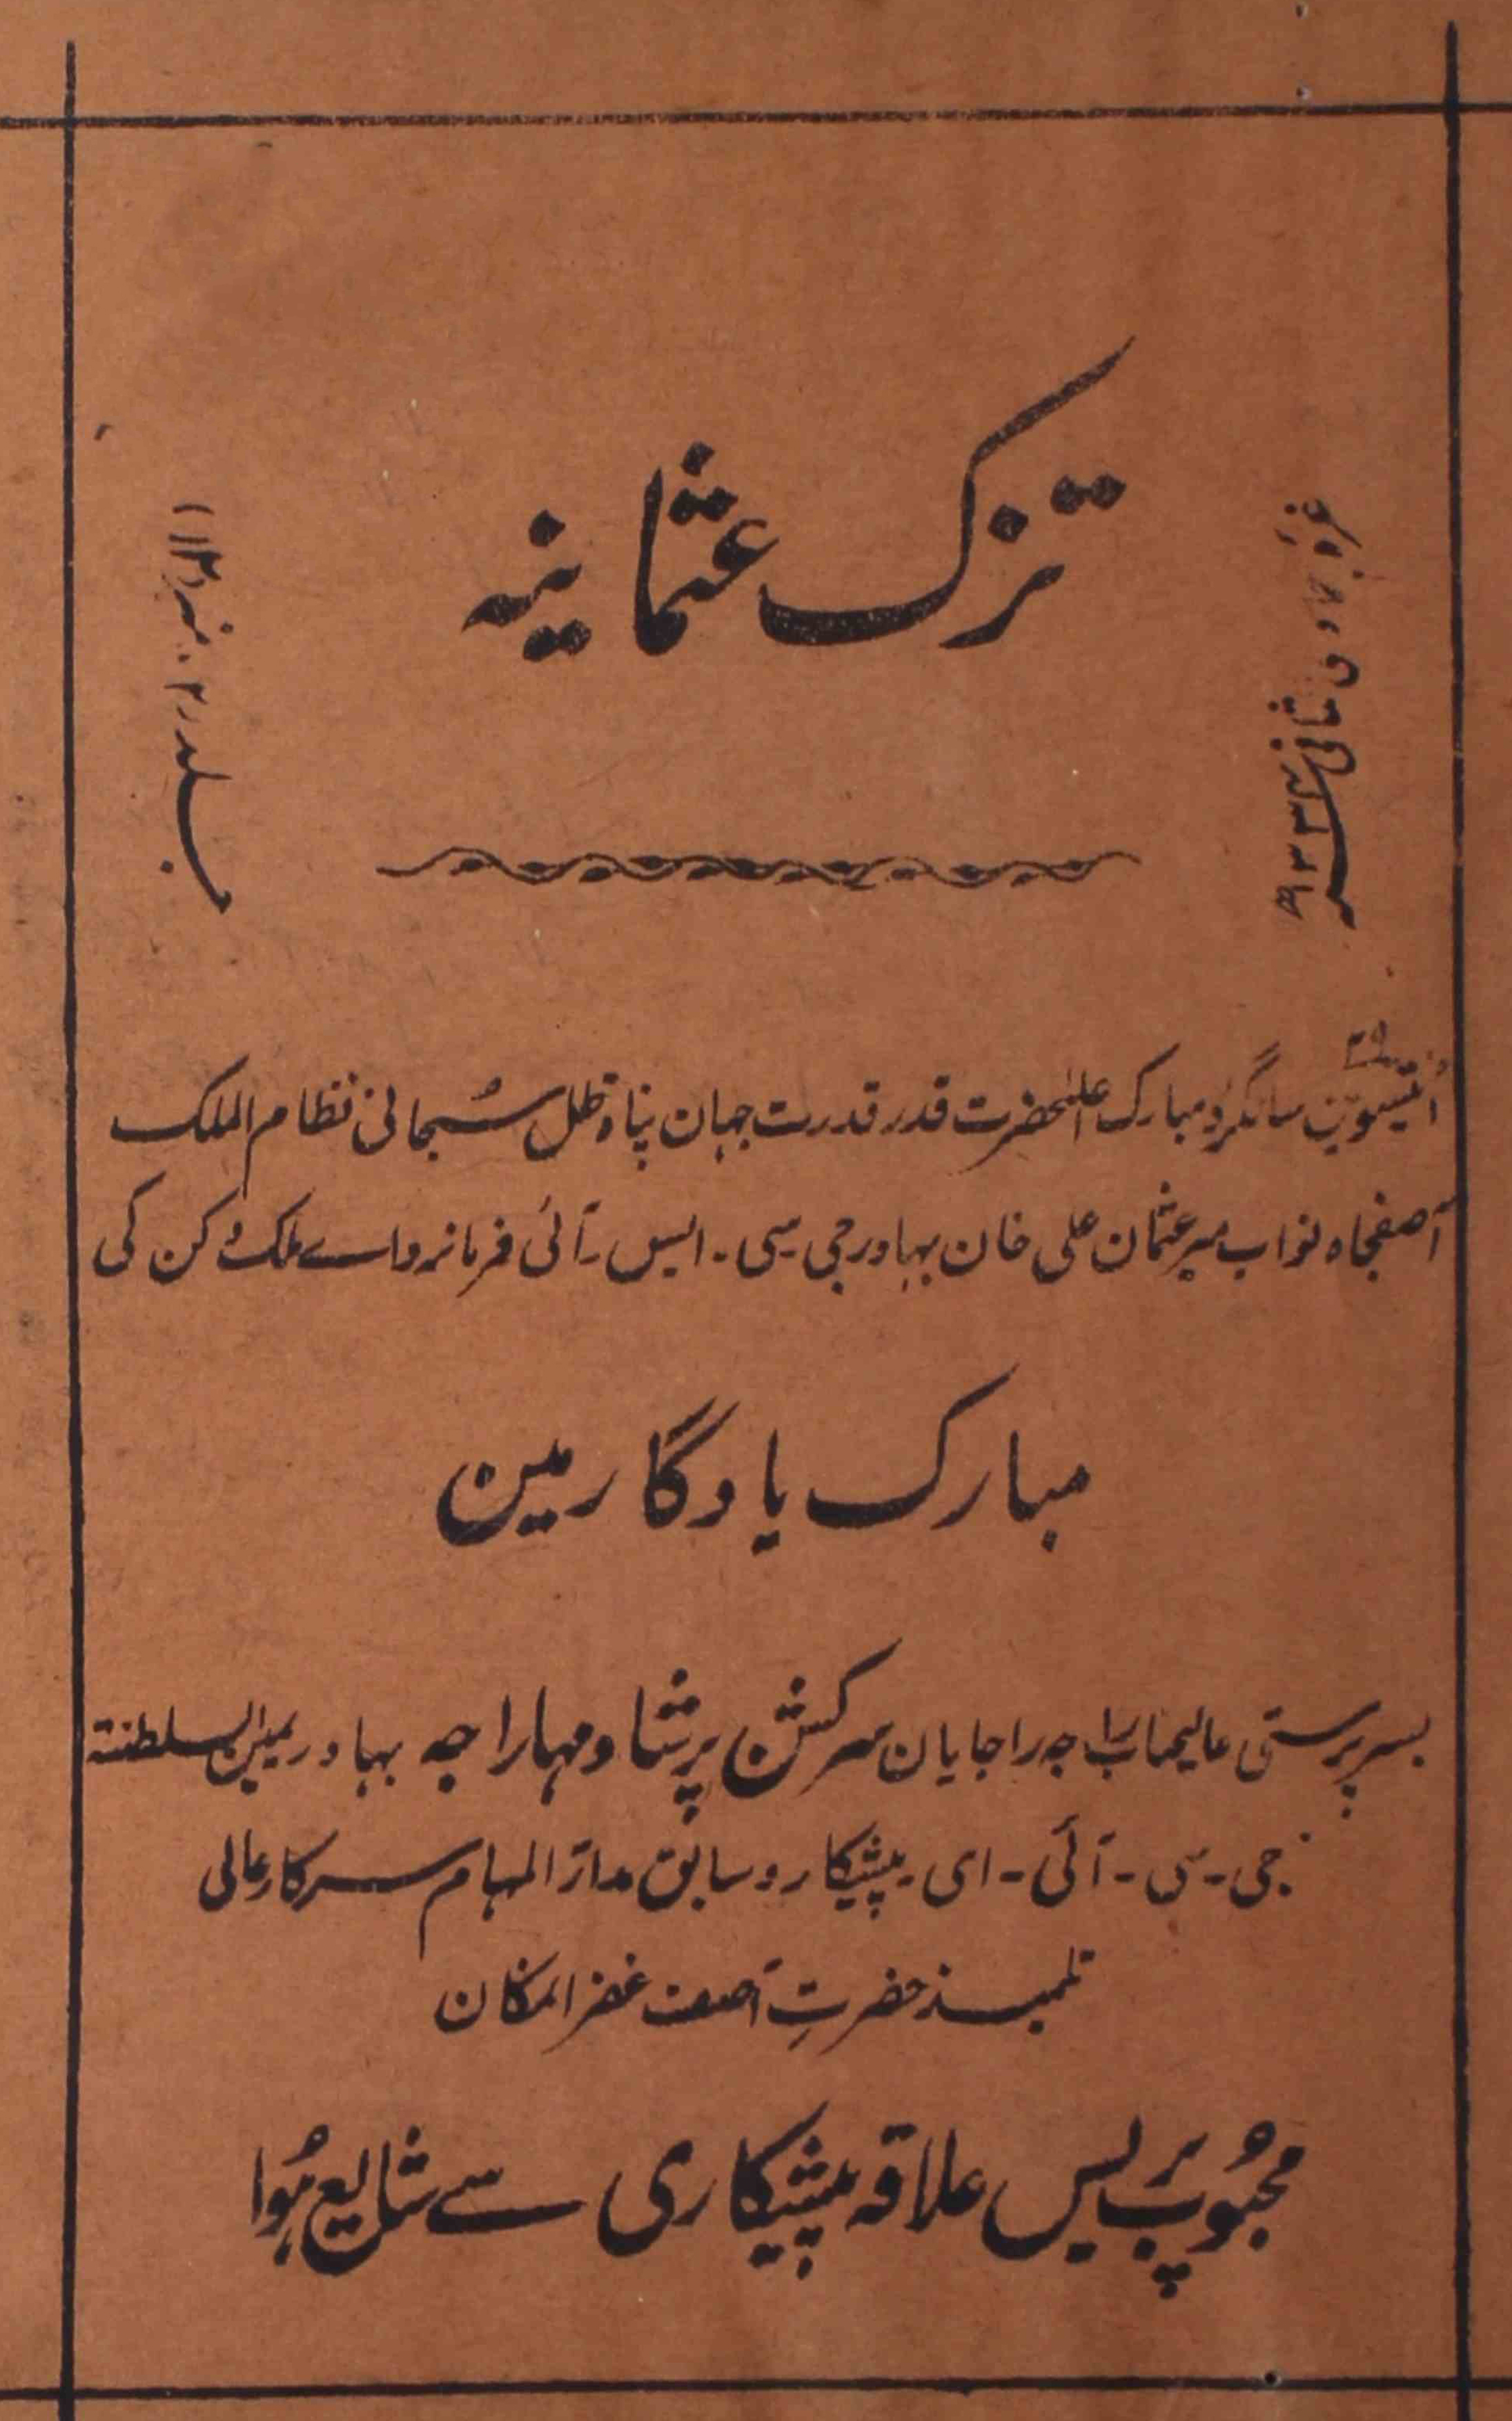 تزک عثمانیہ
جلد (۲) نمبر (۱۲)
جمادی الثانی ۱۳۳۲ھ
۲۹
اُنتیسوین سالگرہ مبارک اعلیٰحضرت قدر قدرت جہان پناہ ظل سبحانی نظام الملک
آصفجاہ نواب میر عثمان علی خان بہادر جی ۔ سی ۔ ایس ۔ آئی فرمانروائے ملک دکن کی
مبارک یادگار مین
بسرپرستی عالیجناب راجہ راجایان سرکشن پرشاد مہاراجہ بہادر یمین السلطنتہ
جی ۔ سی ۔ آئی ۔ ای ۔ پیشکار و سابق مدار المہام سرکار عالی
تلمیذ حضرتِ آصف غفر المکان
محبُوب پریس علاقہ پیشکاری سے شایع ہُوا